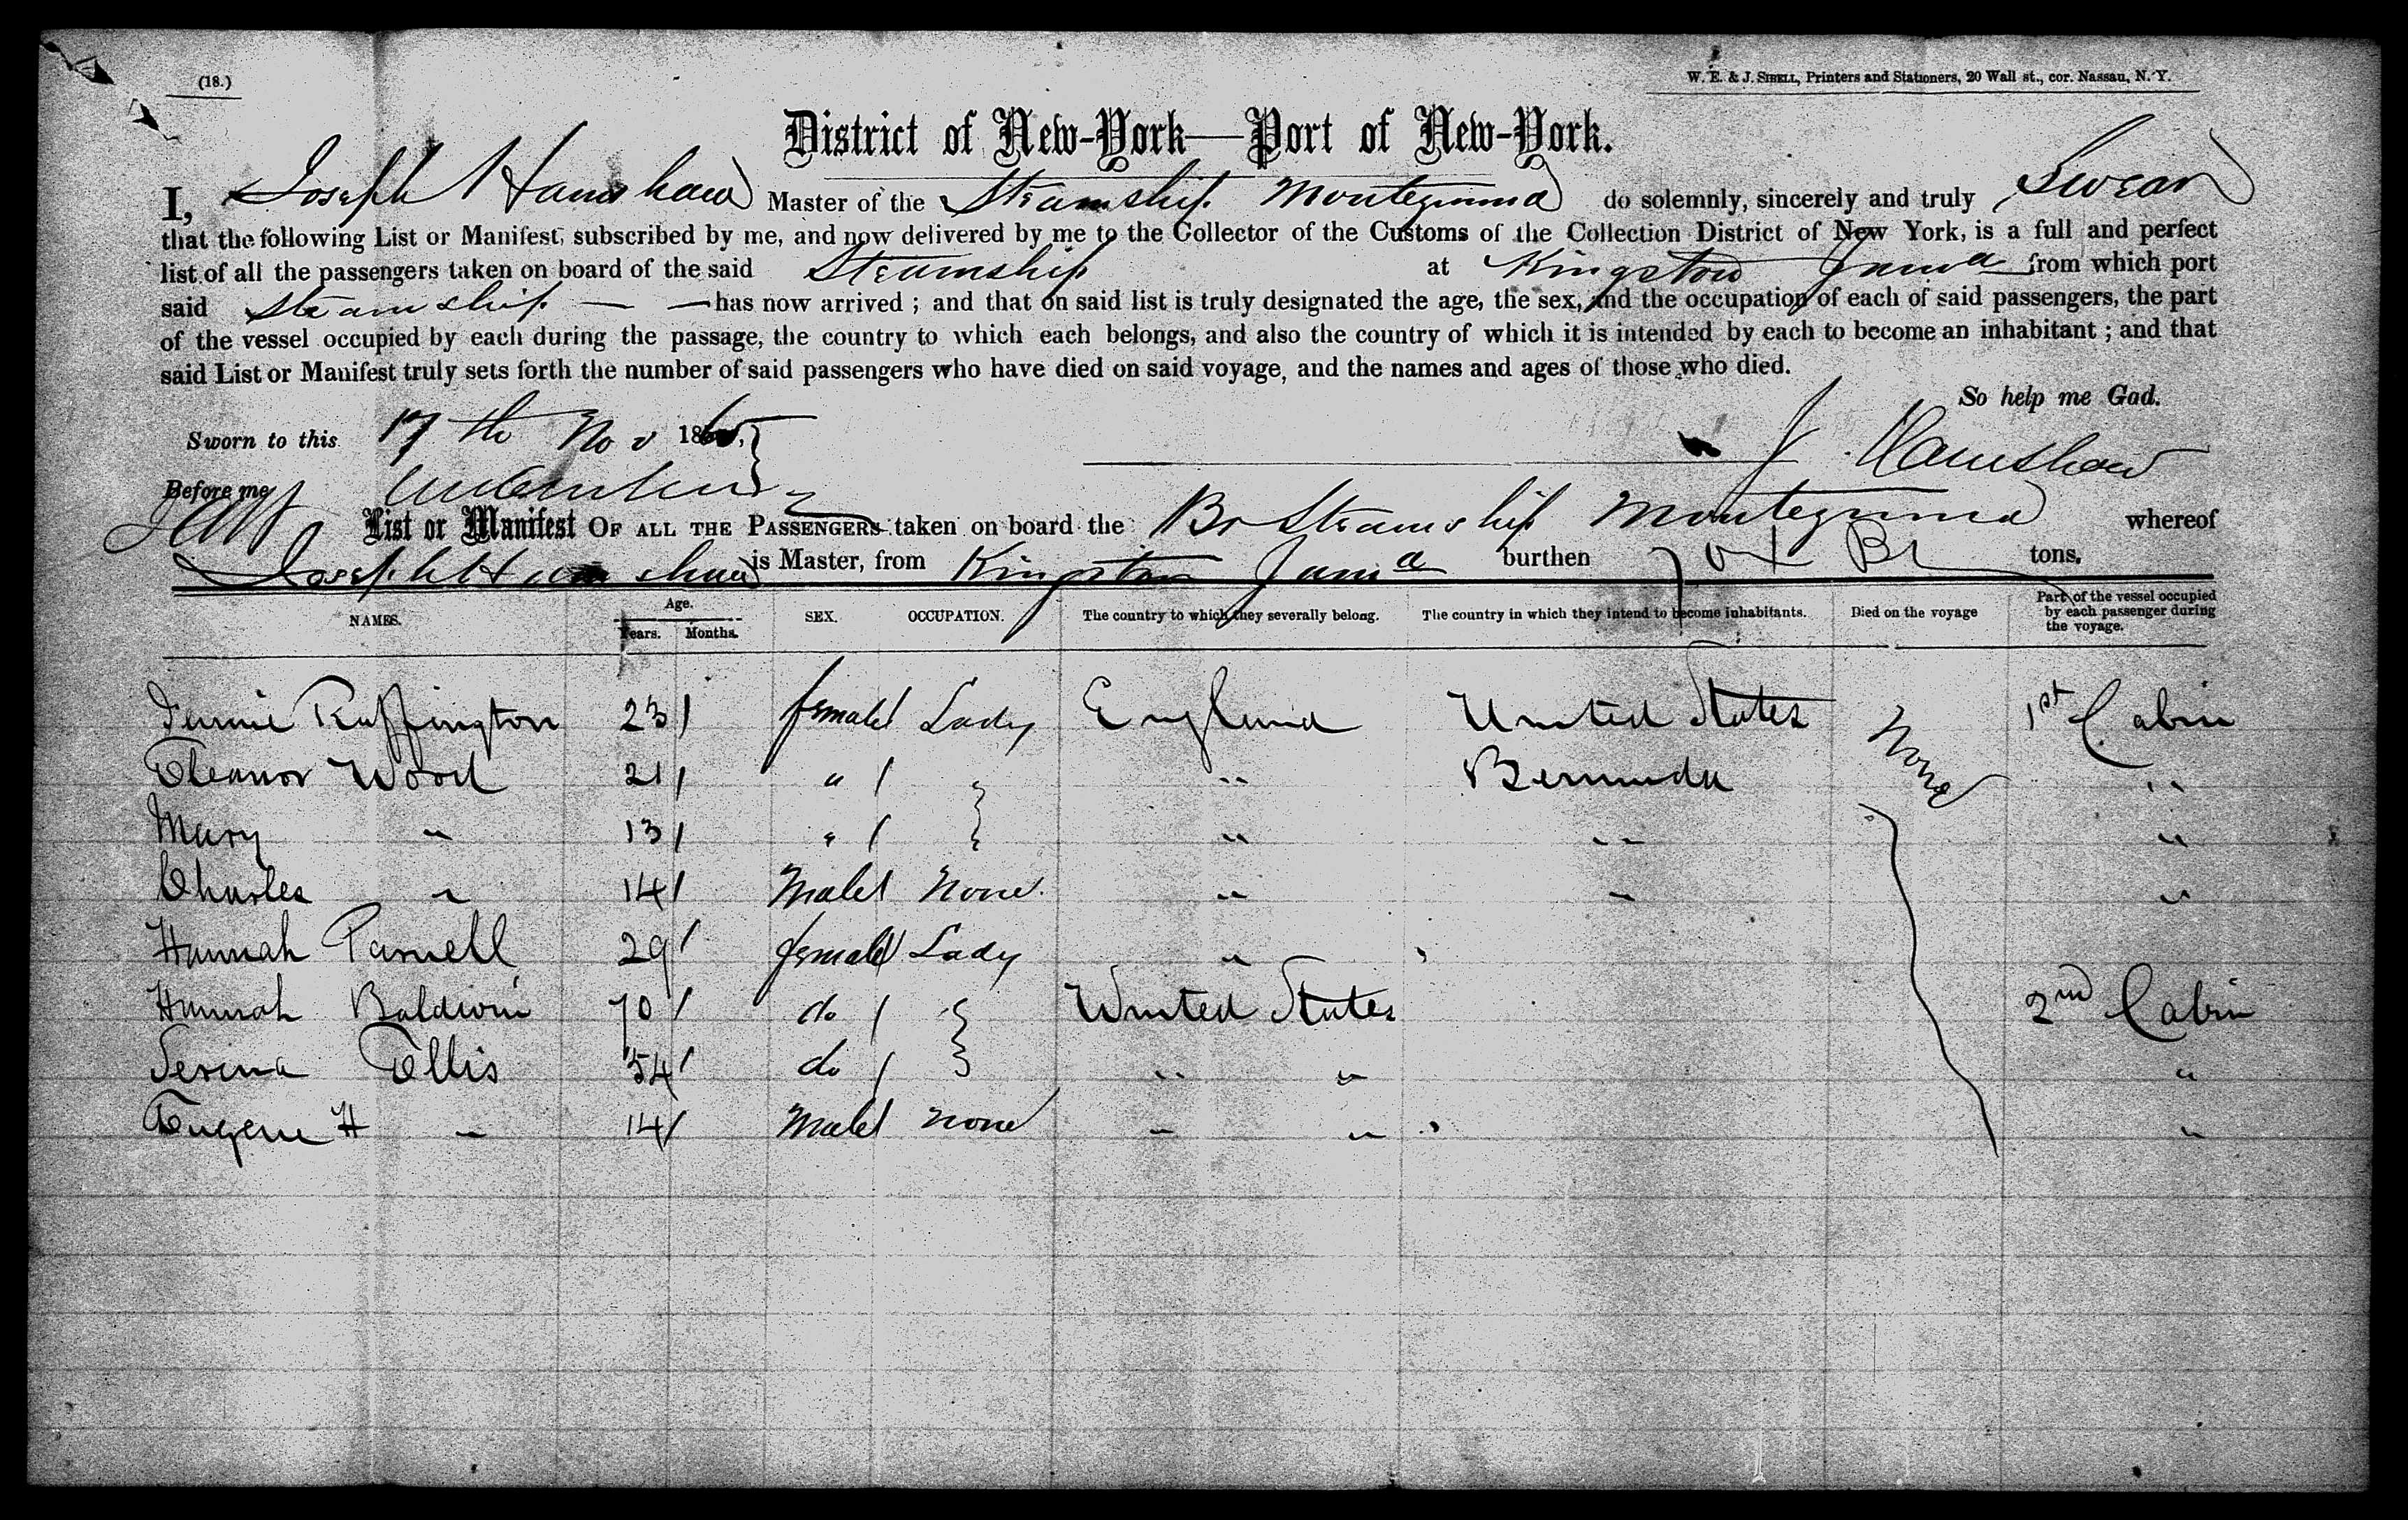 (18.)
W. E. & J. SIBELL, Printers and Stationers, 20 Wall st., cor. Nassau, N. Y.
District of New-York—Port of New-York.
I, Joseph Hamshaw Master of the Steamship Montezuma do solemnly, sincerely and truly Swear
that the following List or Manifest, subscribed by me, and now delivered by me to the Collector of the Customs of the Collection District of New York, is a full and perfect
list of all the passengers taken on board of the said Steamship at Kingston Jama from which port
said Steamship — — has now arrived ; and that on said list is truly designated the age, the sex, and the occupation of each of said passengers, the part
of the vessel occupied by each during the passage, the country to which each belongs, and also the country of which it is intended by each to become an inhabitant ; and that
said List or Manifest truly sets forth the number of said passengers who have died on said voyage, and the names and ages of those who died.
So help me God.
Sworn to this 17th Nov 186
J Hamshaw
Before me
List or Manifest OF ALL THE PASSENGERS taken on board the Br Steamship Montezuma whereof
Joseph Hamshaw is Master, from Kingston Jama burthen tons.
NAMES. Age. Years. Months. SEX. OCCUPATION. The country to which they severally belong. The country in which they intend to become inhabitants. Died on the voyage Part of the vessel occupied by each passenger during the voyage.
Fennie Ruffington 23 / female / Lady England United States None 1st Cabin
Eleanor Wood 21 / " / } " Bermuda "
Mary " 13 / " / } " " "
Charles " 14 / Male / None. " " "
Hannah Parnell 29 / female / Lady "
Hannah Baldwin 70 / do / } United States 2nd Cabin
Serina Ellis 54 / do / } " " "
Eugene H " 14 / Male / none " " "